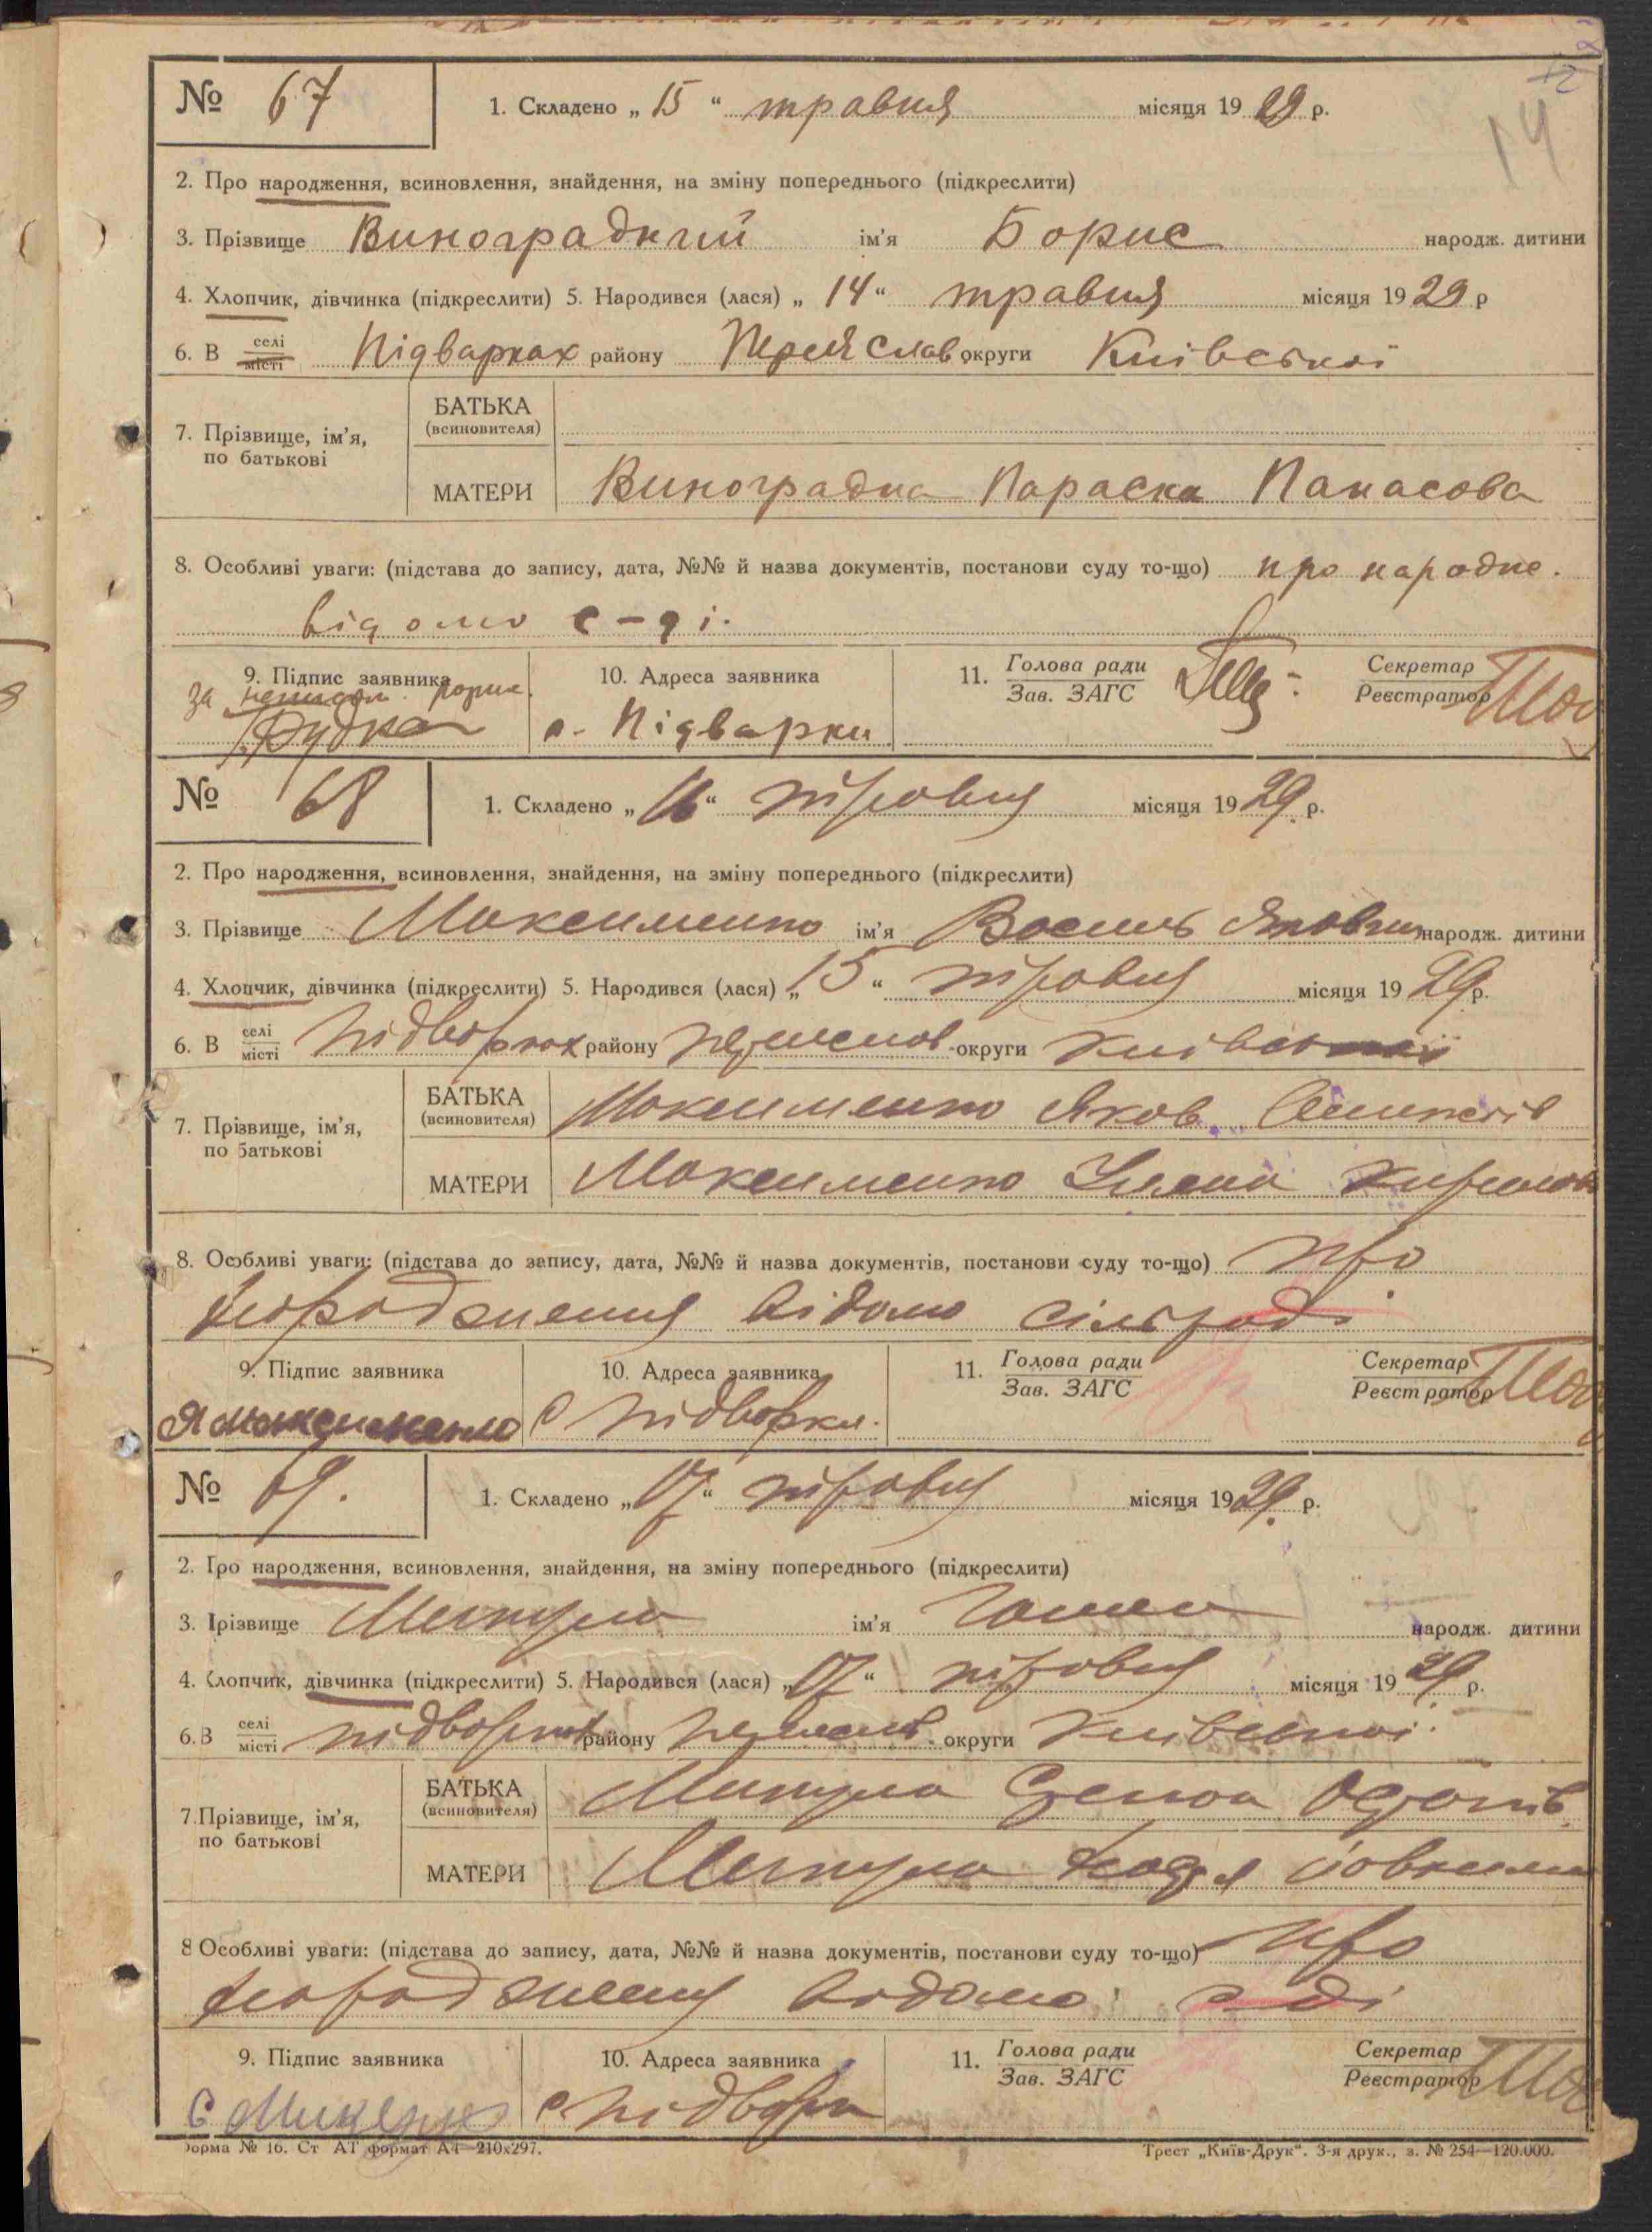 14
№ 67 1. Складено „ 15 “ травня місяця 19 29 р.
2. Про народження, всиновлення, знайдення, на зміну попереднього (підкреслити)
3. Прізвище Виноградний ім'я Борис народж. дитини
4. Хлопчик, дівчинка (підкреслити) 5. Народився (лася) „ 14 “ травня місяця 19 29 р
6. В селі місті Підварках району Переяслав округи Київської
БАТЬКА
(всиновителя)
7. Прізвище, ім'я,
по батькові
МАТЕРИ Виноградна Параска Панасова
8. Особливі уваги: (підстава до запису, дата, №№ й назва документів, постанови суду то-що) про народже.
відомо с-ді.
9. Підпис заявника 10. Адреса заявника 11. Голова ради Секретар
за Зав. ЗАГС Реєстратор
Рудка с. Підварки
№ 68 1. Складено „ 16 “ травня місяця 19 29 р.
2. Про народження, всиновлення, знайдення, на зміну попереднього (підкреслити)
3. Прізвище Максименко ім'я Василь Якович народж. дитини
4. Хлопчик, дівчинка (підкреслити) 5. Народився (лася) „ 15 “ травня місяця 19 29 р.
6. В селі місті Підварках району округи Київської
БАТЬКА Максименко Яков
(всиновителя)
7. Прізвище, ім'я,
по батькові
МАТЕРИ Максименко Уляна
8. Особливі уваги: (підстава до запису, дата, №№ й назва документів, постанови суду то-що) про
народження відомо сільраді
9. Підпис заявника 10. Адреса заявника 11. Голова ради Секретар
Зав. ЗАГС Реєстратор
Я Максименко с Підварки.
№ 69. 1. Складено „ 17 “ травня місяця 19 29 р.
2. Про народження, всиновлення, знайдення, на зміну попереднього (підкреслити)
3. Прізвище Микула ім'я народж. дитини
4. Хлопчик, дівчинка (підкреслити) 5. Народився (лася) „ 17 “ травня місяця 19 29 р.
6. В селі місті Підварках району округи Київської
БАТЬКА Микула
(всиновителя)
7. Прізвище, ім'я,
по батькові
МАТЕРИ Микула
8 Особливі уваги: (підстава до запису, дата, №№ й назва документів, постанови суду то-що) про
народження відомо с-ді
9. Підпис заявника 10. Адреса заявника 11. Голова ради Секретар
Зав. ЗАГС Реєстратор
С Микула с. Підварки
Форма № 16. Ст АТ формат А4—210х297. Трест „Київ-Друк“. 3-я друк., з. № 254—120.000.